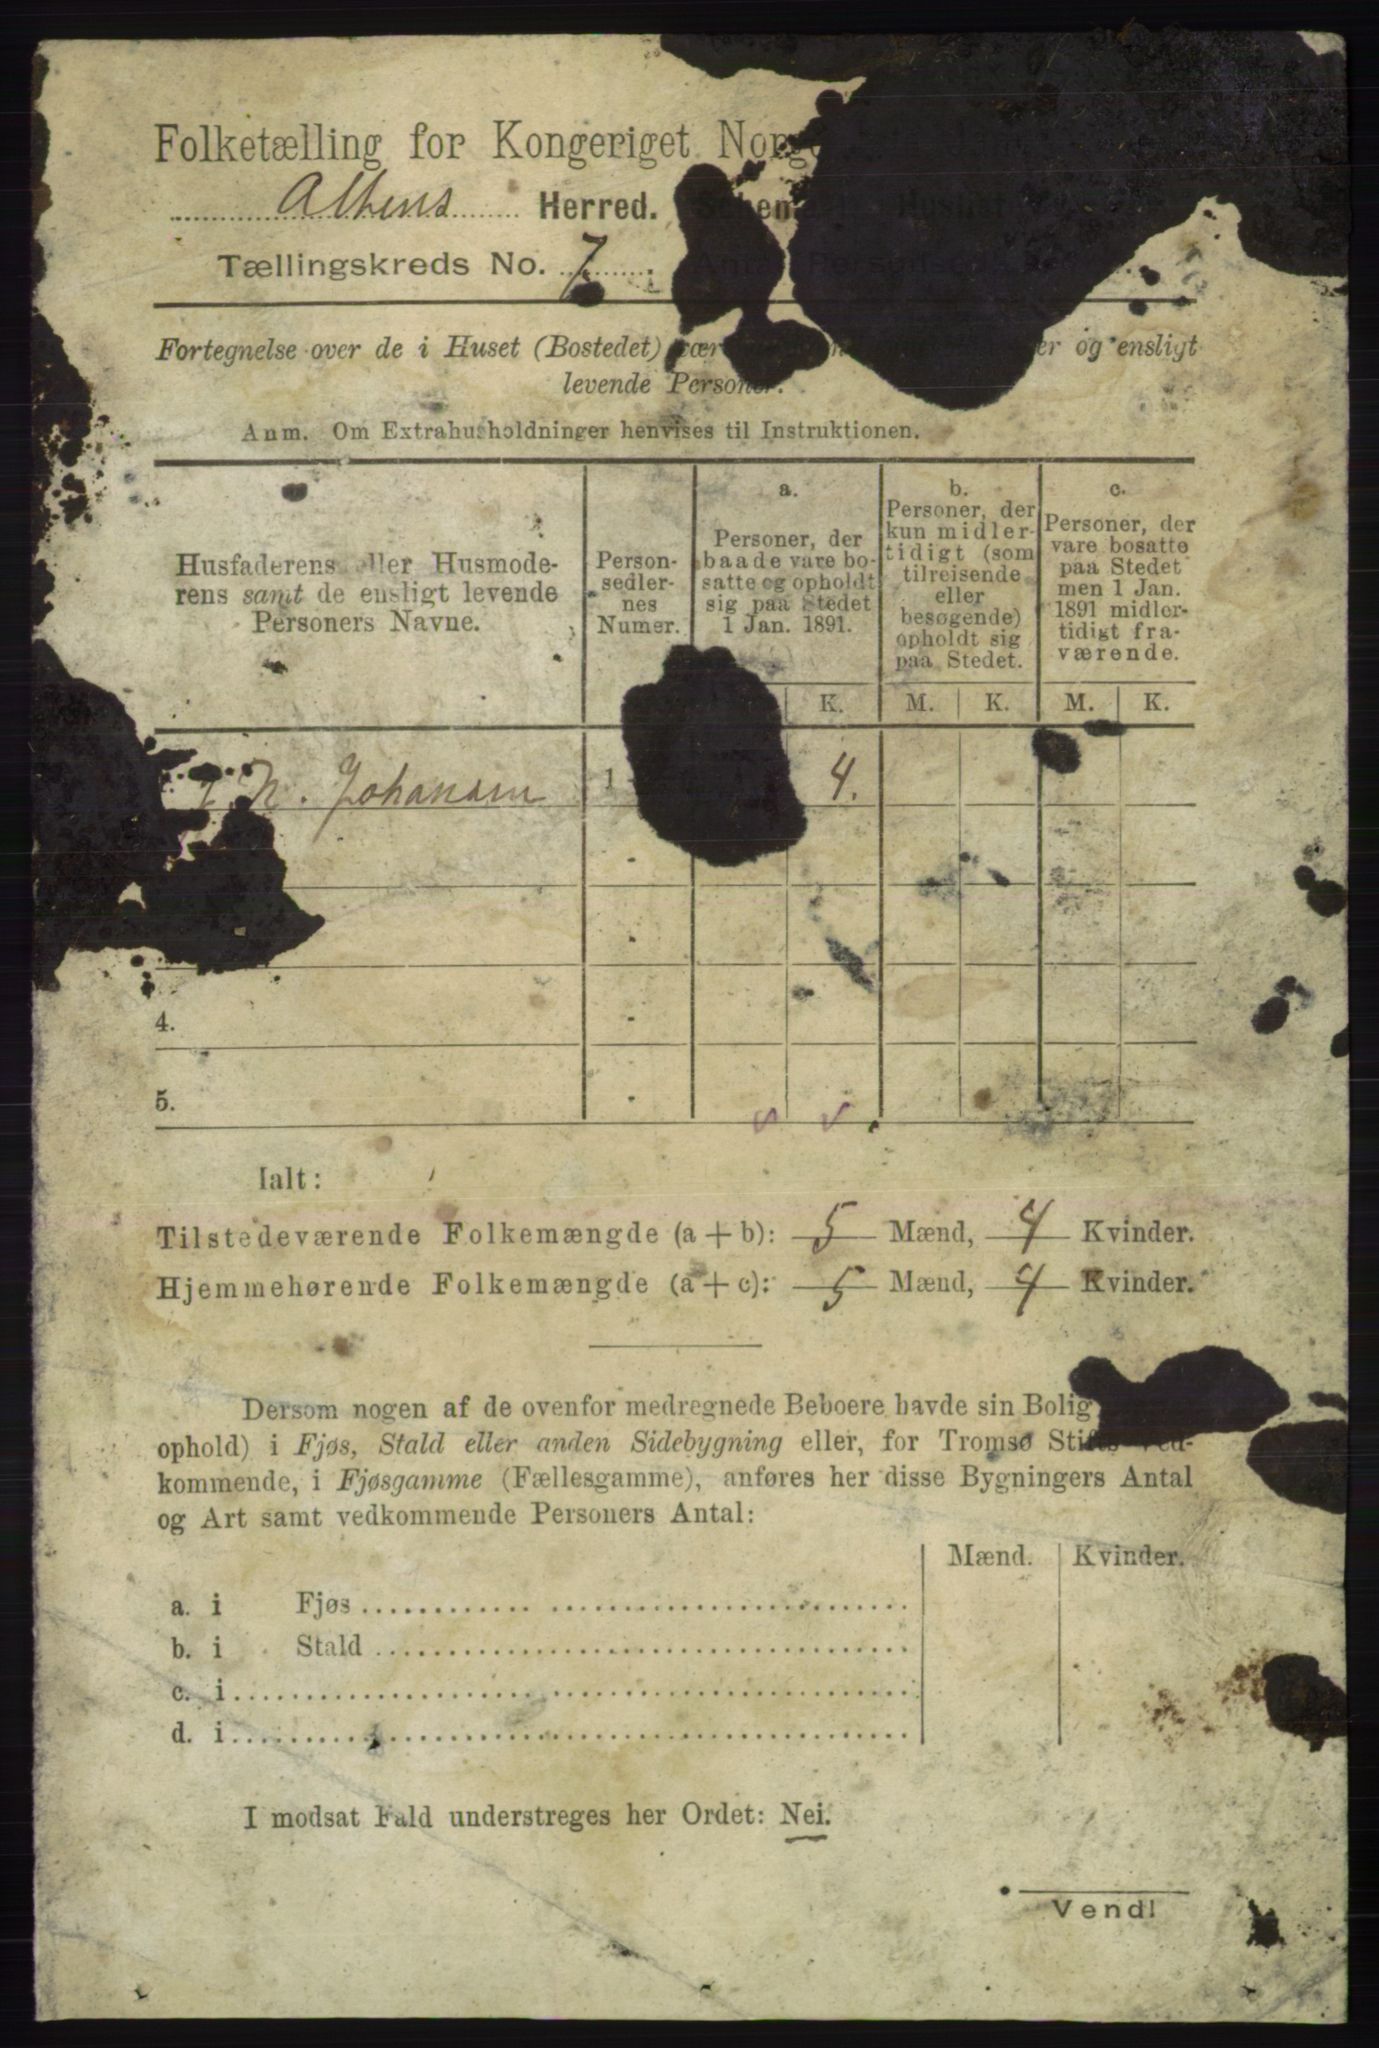 Folketælling for Kongeriget Norge
Altens Herred.
Tællingskreds No. 7.
Fortegnelse over de i Huset (Bostedet) og ensligt
levende Personer.
Anm. Om Extrahusholdninger henvises til Instruktionen.
Husfaderens eller Husmode-
rens samt de ensligt levende
Personers Navne.
Person-
sedler-
nes
Numer.
a.
Personer, der
baade vare bo-
satte og opholdt
sig paa Stedet
1 Jan. 1891.
b.
Personer, der
kun midler-
tidigt (som
tilreisende
eller
besøgende)
opholdt sig
paa Stedet.
c.
Personer, der
vare bosatte
paa Stedet
men 1 Jan.
1891 midler-
tidigt fra-
værende.
K. M. K. M. K.
N. Johansen 1 4.
4.
5.
Ialt:
Tilstedeværende Folkemængde (a + b): 5 Mænd, 4 Kvinder.
Hjemmehørende Folkemængde (a + c): 5 Mænd, 4 Kvinder.
Dersom nogen af de ovenfor medregnede Beboere havde sin Bolig
ophold) i Fjøs, Stald eller anden Sidebygning eller, for Tromsø Stifts Ved-
kommende, i Fjøsgamme (Fællesgamme), anføres her disse Bygningers Antal
og Art samt vedkommende Personers Antal:
Mænd. Kvinder.
a. i Fjøs
b. i Stald
c. i
d. i
I modsat Fald understreges her Ordet: Nei.
Vend!